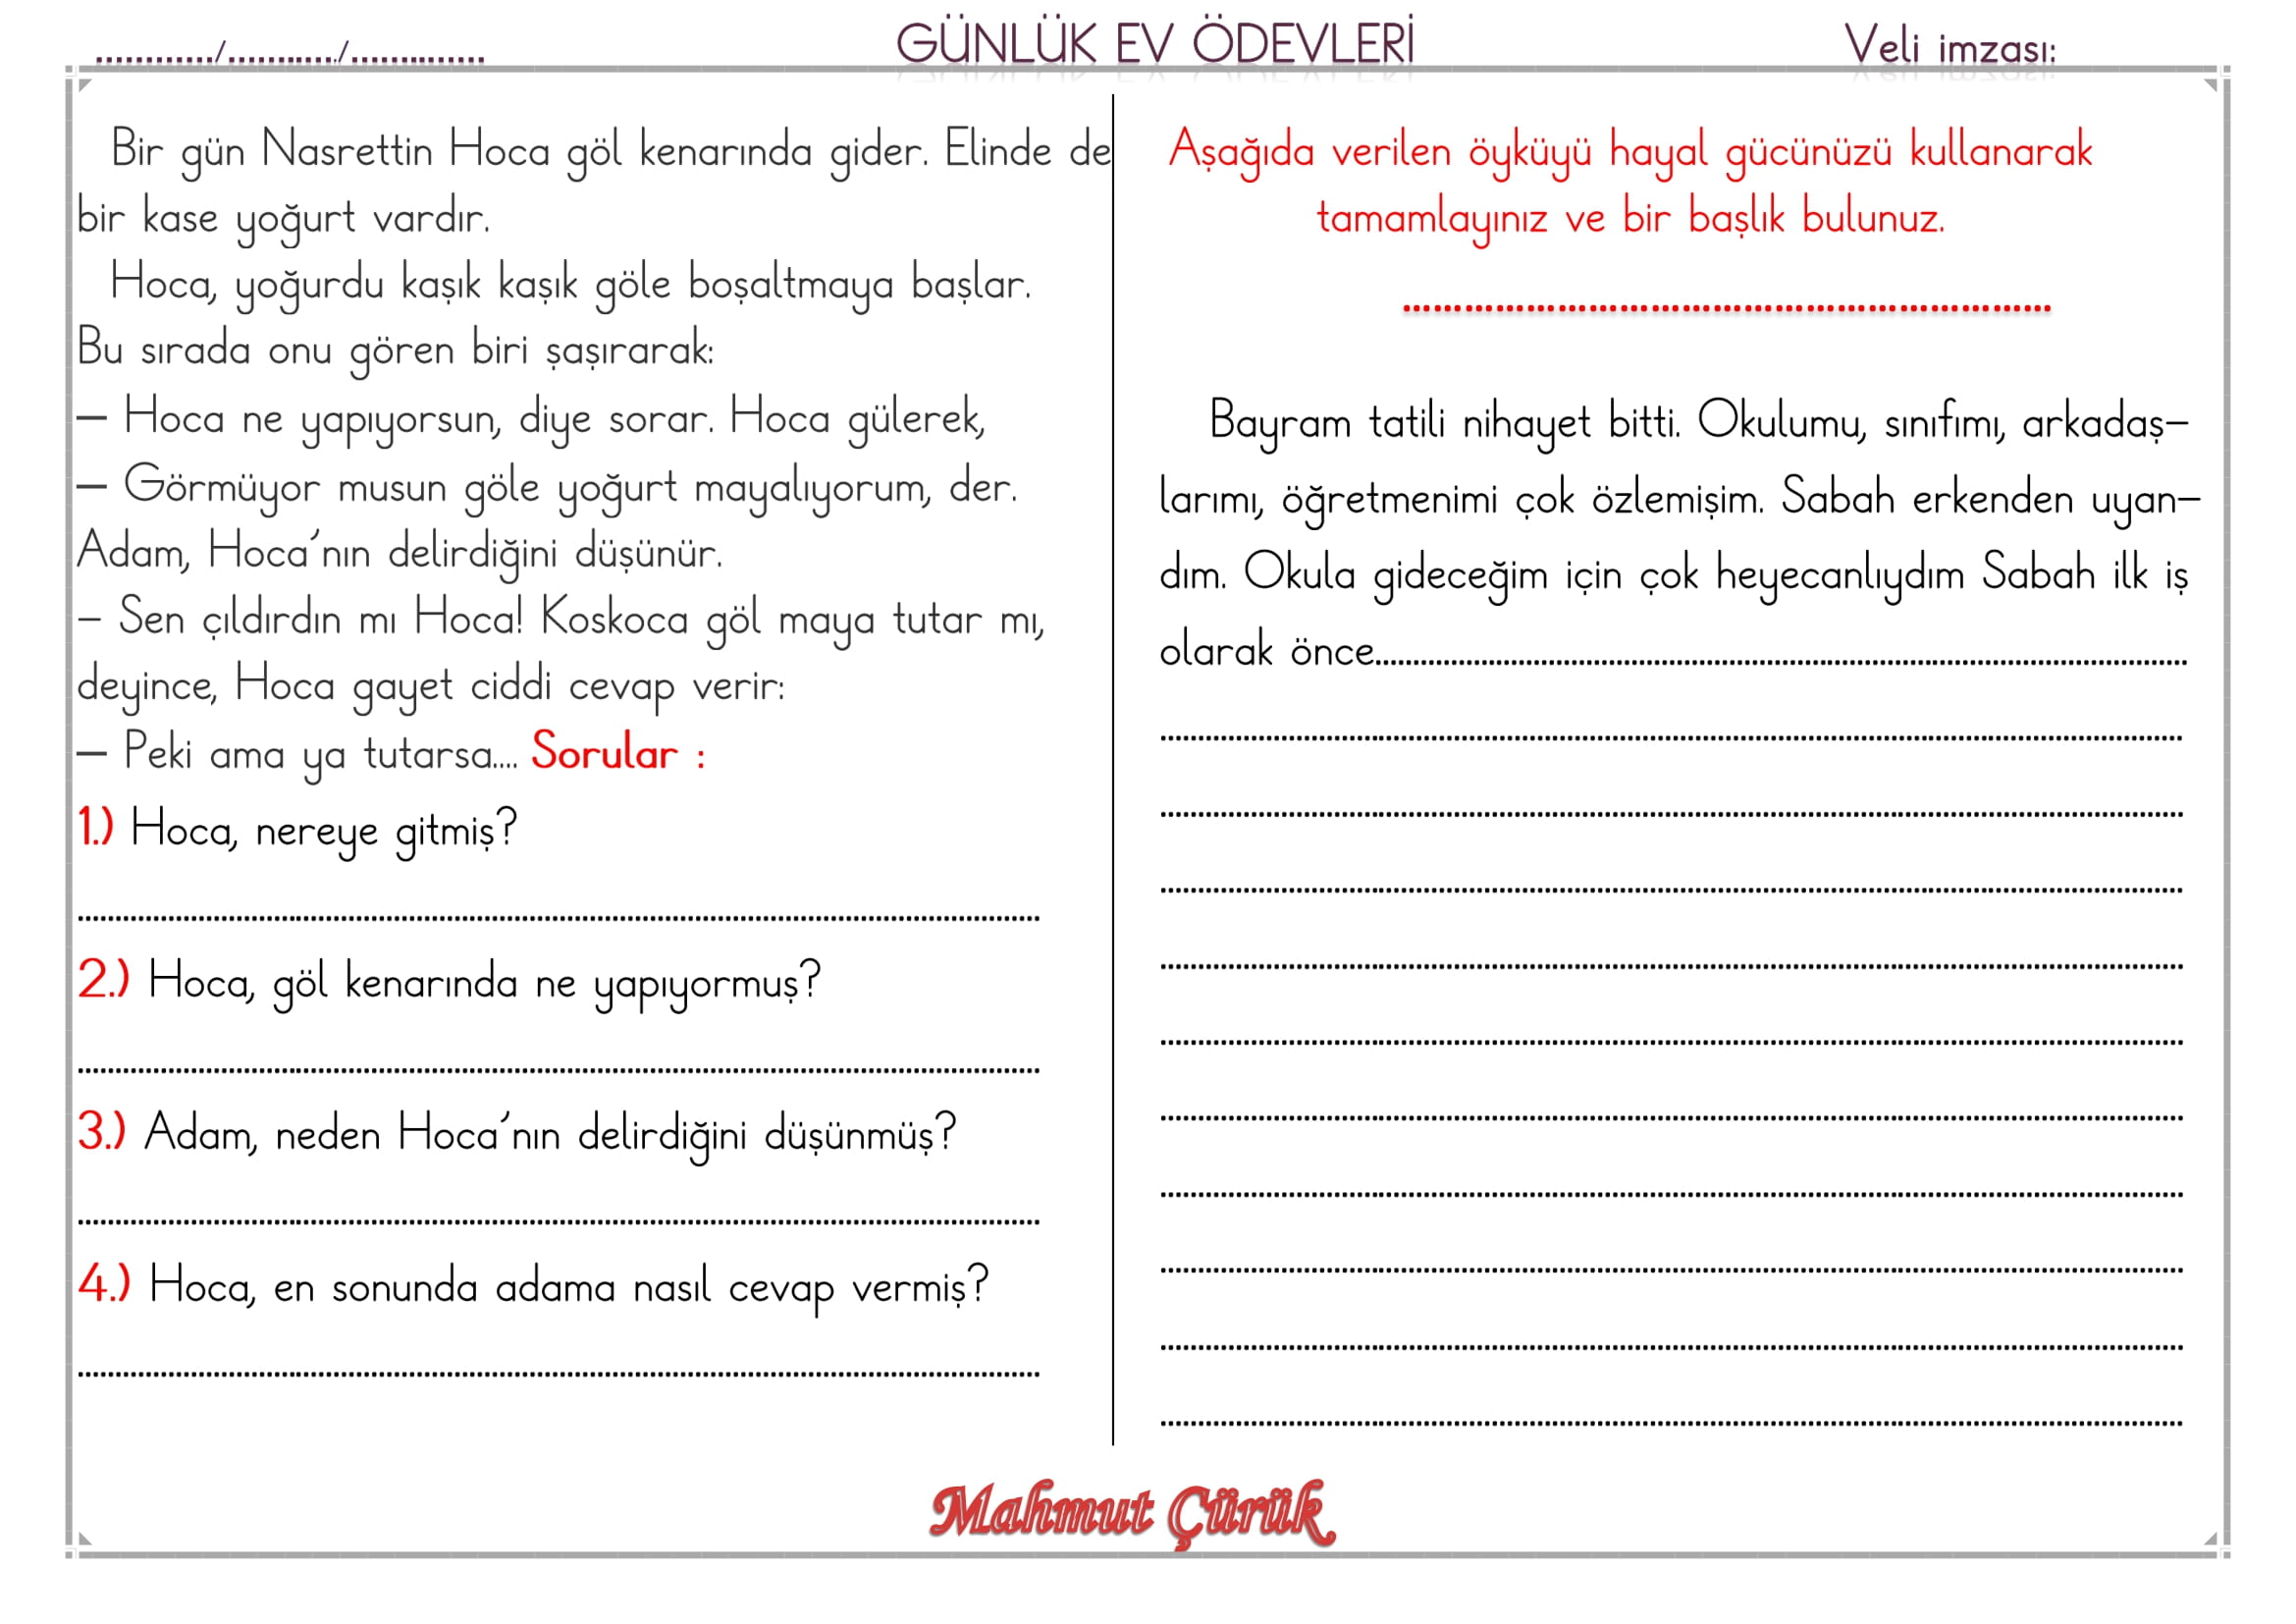 ............/............/..............
GÜNLÜK EV ÖDEVLERİ
Veli imzası:
Bir gün Nasrettin Hoca göl kenarında gider. Elinde de
bir kase yoğurt vardır.
Hoca, yoğurdu kaşık kaşık göle boşaltmaya başlar.
Bu sırada onu gören biri şaşırarak:
— Hoca ne yapıyorsun, diye sorar. Hoca gülerek,
— Görmüyor musun göle yoğurt mayalıyorum, der.
Adam, Hoca’nın delirdiğini düşünür.
– Sen çıldırdın mı Hoca! Koskoca göl maya tutar mı,
deyince, Hoca gayet ciddi cevap verir:
— Peki ama ya tutarsa.... Sorular :
1.) Hoca, nereye gitmiş?
2.) Hoca, göl kenarında ne yapıyormuş?
3.) Adam, neden Hoca’nın delirdiğini düşünmüş?
4.) Hoca, en sonunda adama nasıl cevap vermiş?
Aşağıda verilen öyküyü hayal gücünüzü kullanarak
tamamlayınız ve bir başlık bulunuz.
Bayram tatili nihayet bitti. Okulumu, sınıfımı, arkadaş-
larımı, öğretmenimi çok özlemişim. Sabah erkenden uyan-
dım. Okula gideceğim için çok heyecanlıydım Sabah ilk iş
olarak önce....................
Mahmut Çürük